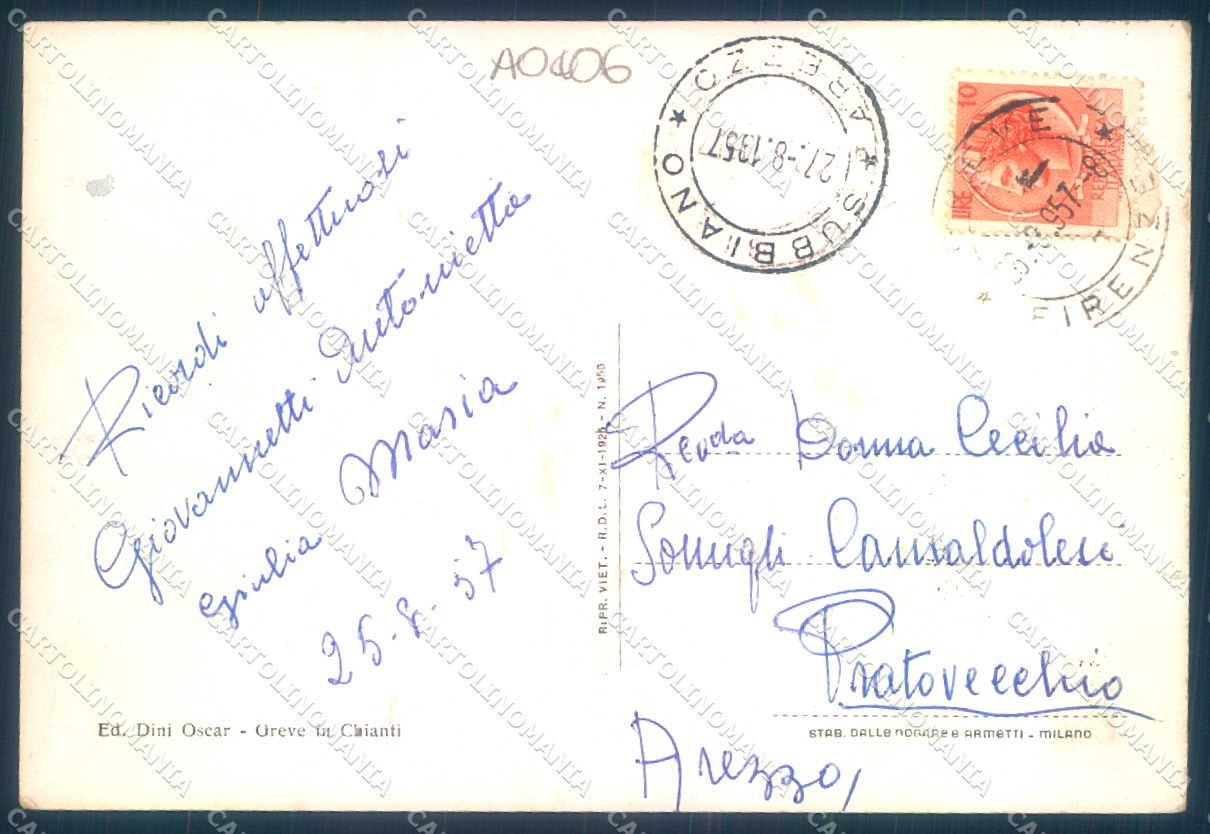 A0406
SUBBIANO * AREZZO *
27.-8.1957
LIRE 10
REP. ITALIANA
GREVE * FIRENZE *
Ricordi affettuosi
Giovannetti Antonietta
Giulia Maria
25-8-57
Revda Donna Cecilia
Camaldolesi
Pratovecchio
Arezzo,
RIPR. VIET. - R.D.L. 7-XI-1925 - N. 1950
Ed. Dini Oscar - Greve in Chianti
STAB. DALLE NOGARE E ARMETTI - MILANO
CARTOLINOMANIA